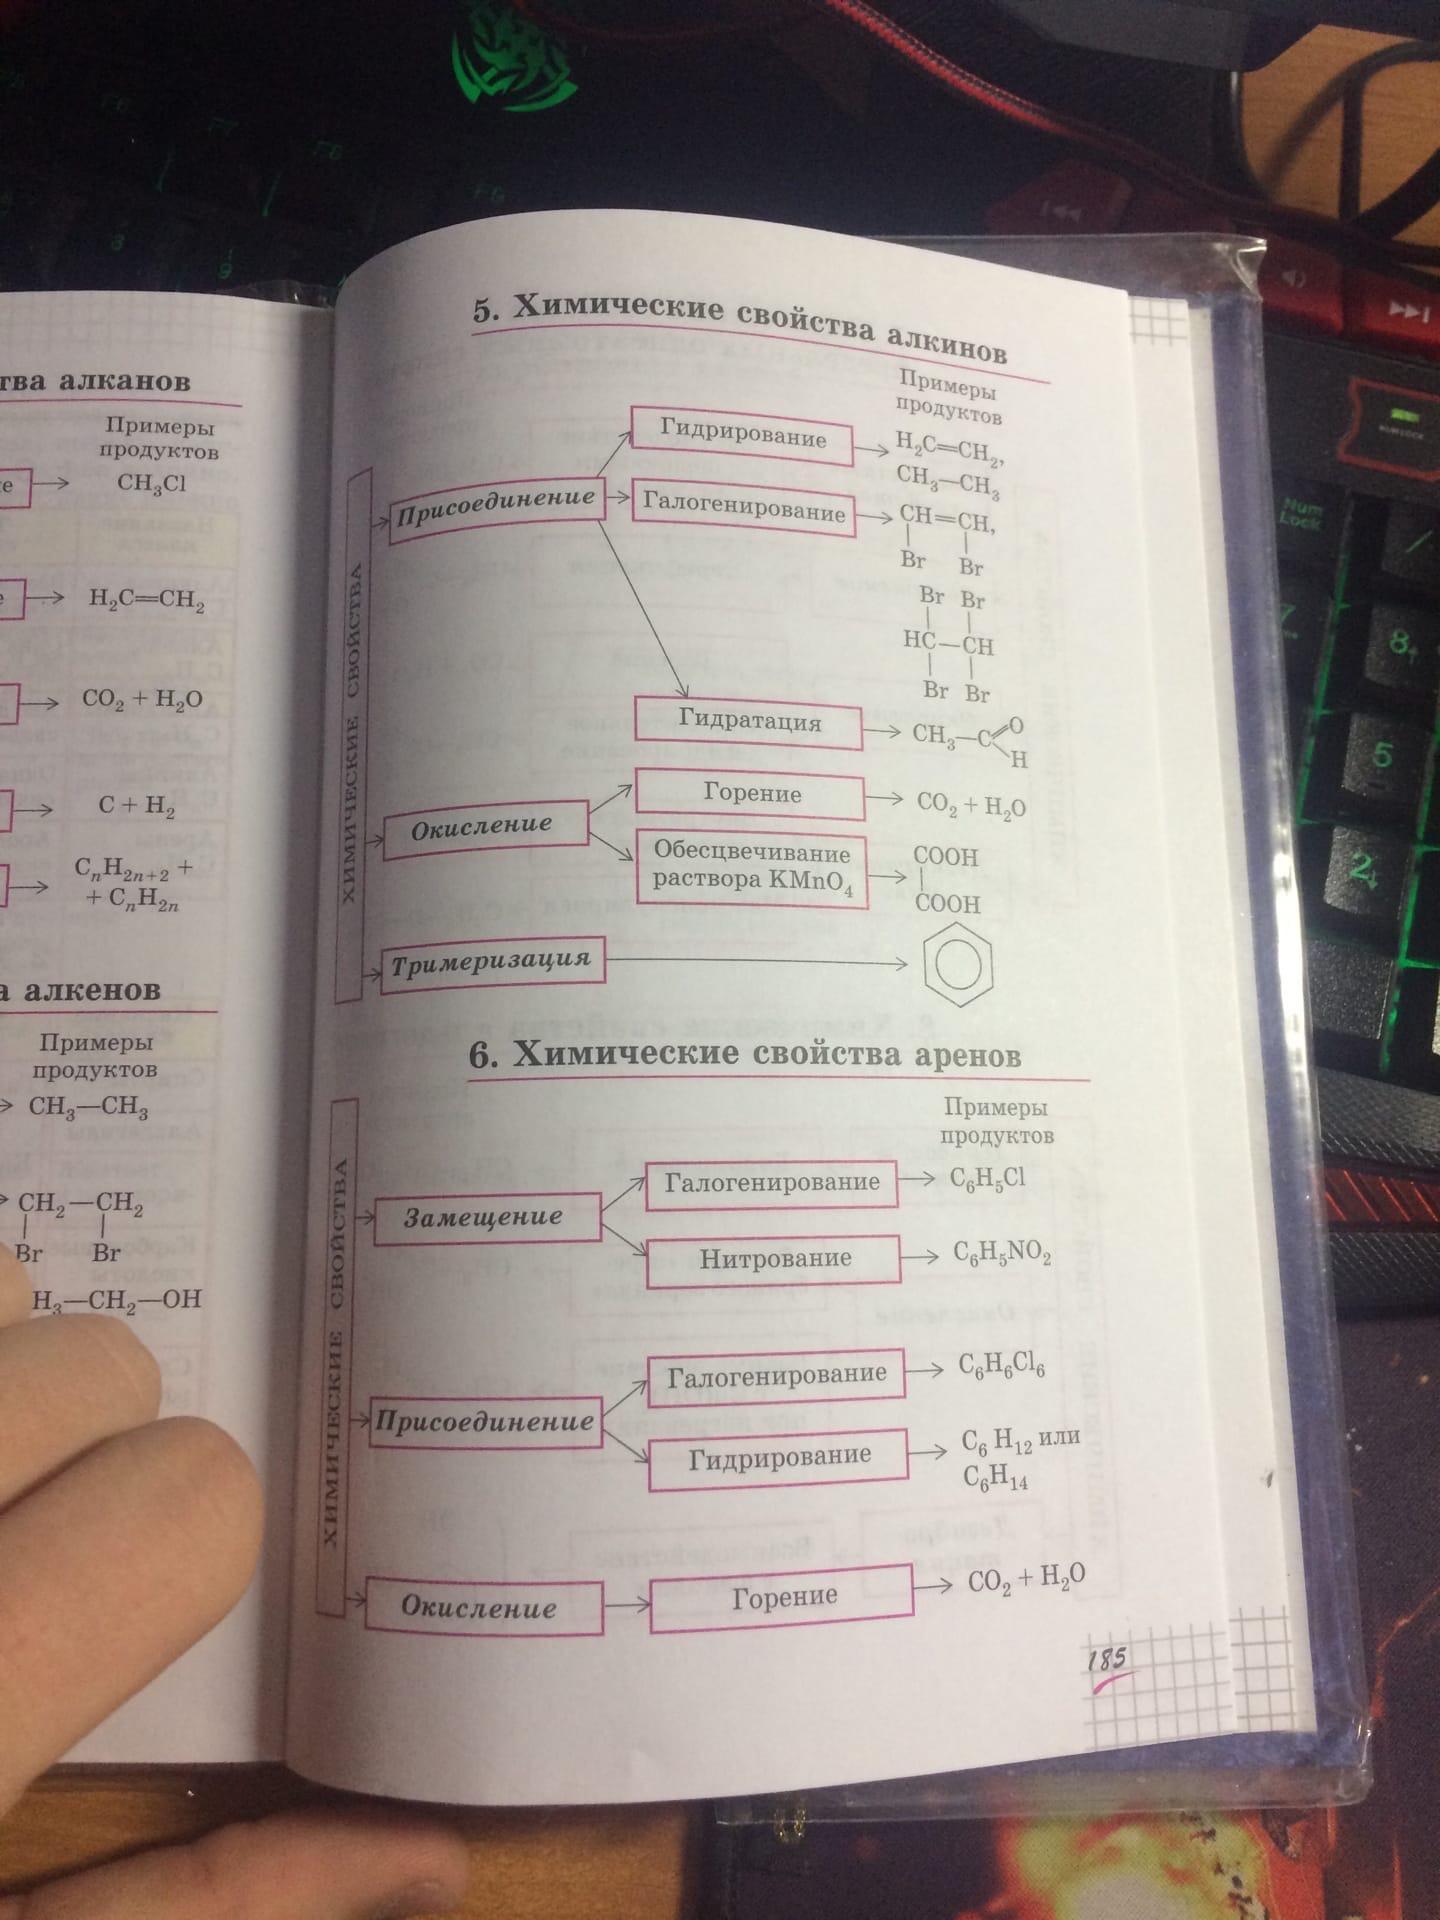 тва алканов
Примеры
продуктов
CH₃Cl
H₂C=CH₂
CO₂ + H₂O
C + H₂
CₙH₂ₙ₊₂ +
+ CₙH₂ₙ
а алкенов
Примеры
продуктов
CH₃—CH₃
CH₂—CH₂
Br Br
H₃—CH₂—OH
5. Химические свойства алкинов
Примеры
продуктов
ХИМИЧЕСКИЕ СВОЙСТВА
Присоединение
Гидрирование
H₂C=CH₂,
CH₃—CH₃
Галогенирование
CH=CH,
Br Br
Br Br
HC—CH
Br Br
Гидратация
CH₃—C
O
H
Окисление
Горение
CO₂ + H₂O
Обесцвечивание
раствора KMnO₄
COOH
COOH
Тримеризация
6. Химические свойства аренов
Примеры
продуктов
ХИМИЧЕСКИЕ СВОЙСТВА
Замещение
Галогенирование
C₆H₅Cl
Нитрование
C₆H₅NO₂
Присоединение
Галогенирование
C₆H₆Cl₆
Гидрирование
C₆ H₁₂ или
C₆H₁₄
Окисление
Горение
CO₂ + H₂O
185
Num
Lock
7
8
5
2